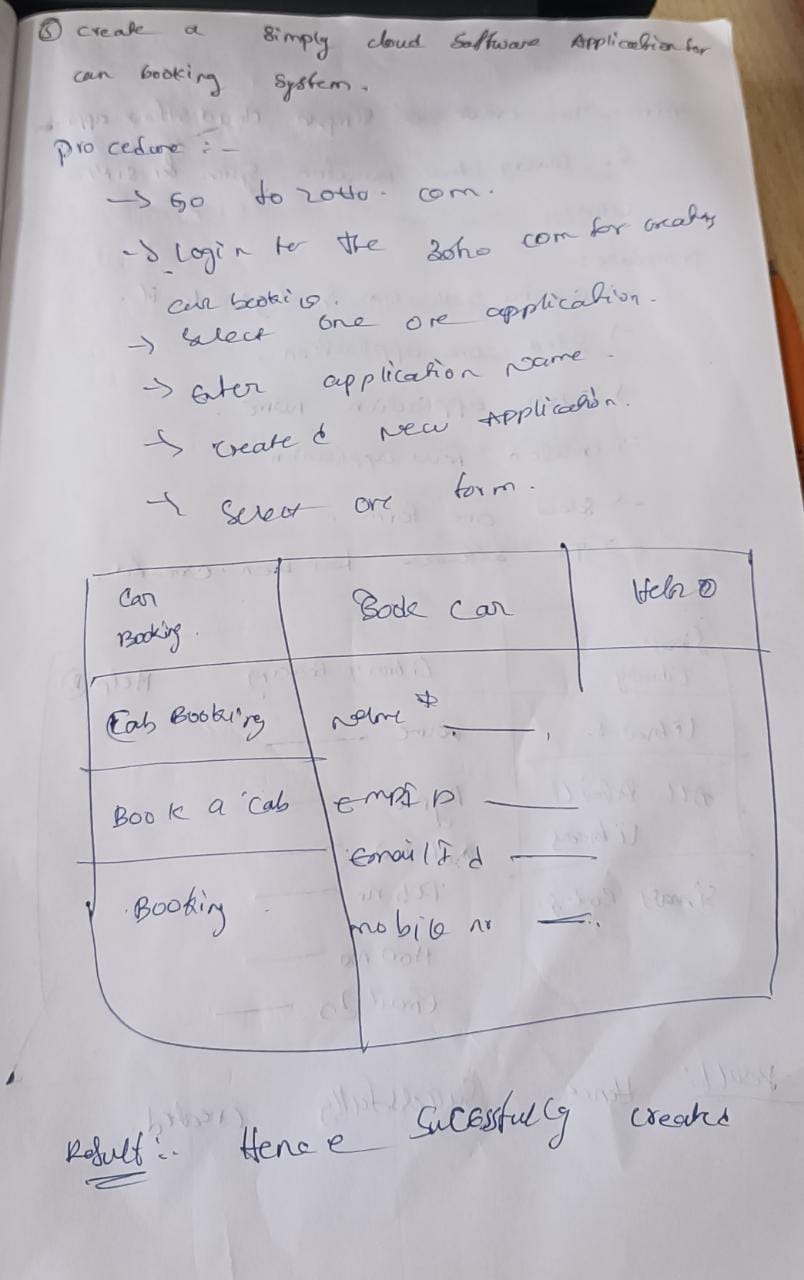 ⑤ Create a Simply cloud Software Application for
car booking system.
Procedure :-
→ Go to zoho. com.
→ Login to the zoho com for creating
car booking.
→ Select one ore application.
→ Enter application name.
→ Created new Application.
→ Select ore form.
Car
Booking.
Book Car
Cab Booking
Name *
Book a Cab
EMP I D
Email Id
Booking
mobile no
Result :- Hence Sucessfully created